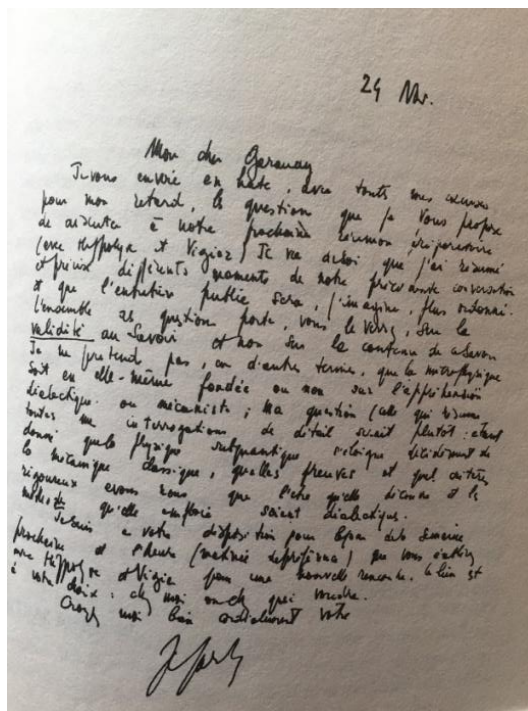 24 Nov.
Mon cher Garaudy
Je vous envoie en hâte, avec toutes mes excuses
pour mon retard, les question que je vous propose
de discuter à notre prochaine réunion préparatoire
(avec Hyppolyte et Vigier) Je vois que j'ai résumé
et précisé différents moments de notre précédente conversation
et que l'entretien public sera, j'imagine, plus ordonné.
L'ensemble des question porte, vous le verrez, sur la
validité du Savoir et non sur le contenu de ce Savoir
Je ne prétend pas, en d'autres termes, que la microphysique
soit en elle-même fondée ou non sur l'appréhension
dialectique ou mécaniste; Ma question (celle qui résume
toutes mes interrogations de détail serait plutôt: étant
donné que la physique subquantique s'éloigne décidément de
la mécanique classique, quelles preuves et quel critère
rigoureux avons nous que l'être qu'elle découvre et les
méthodes qu'elle emploie soient dialectiques.
Je suis à votre disposition pour le jour de la semaine
prochaine et l'heure (matinée) que vous
avec Hyppolyte et Vigier pour une nouvelle rencontre. Le lieu est
à votre choix: chez moi ou chez qui voudra.
Croyez moi bien cordialement votre